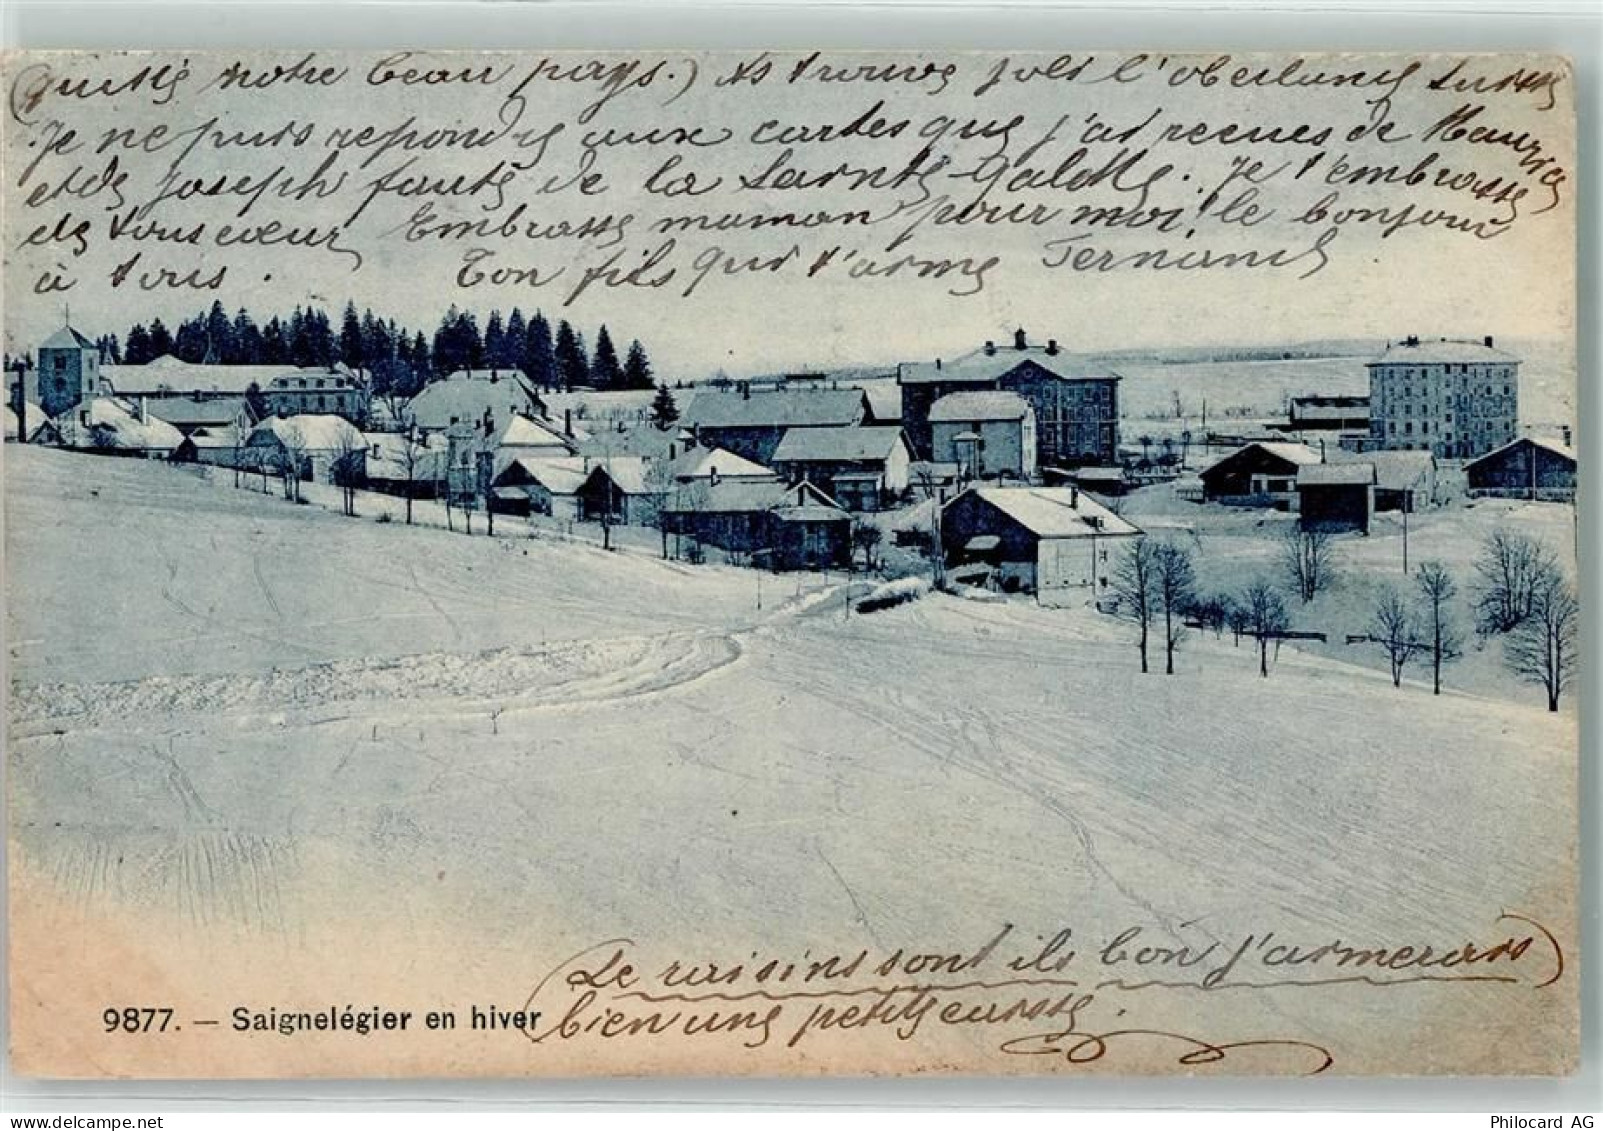 (quitté notre beau pays.) As trouve joli l'oberland Suisse
Je ne puis repondre aux cartes que j'ai recues de Maurice
et de joseph faute de la Sainte-Galette. Je t'embrasse
de tous cœur Embrasse maman pour moi! le bonjour
à tous. Ton fils qui t'aime Fernand
(Le raisins sont ils bon j'aimerais)
bien une petite caisse.
9877. — Saignelégier en hiver
Philocard AG